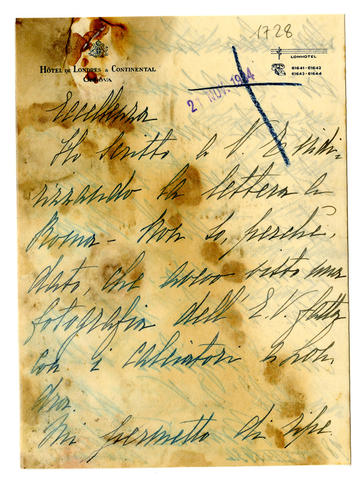 1728
HÔTEL DE LONDRES & CONTINENTAL
GENOVA
LONHOTEL
61641-61642
61643-61644
21 NOV. 1934
Eccellenza
Ho scritto a V. E. indi-
rizzando la lettera a
Roma - Non so, perché,
dato che avevo visto una
fotografia dell'E. V. fatta
con i calciatori a Lon
dra.
Mi permetto di ripe